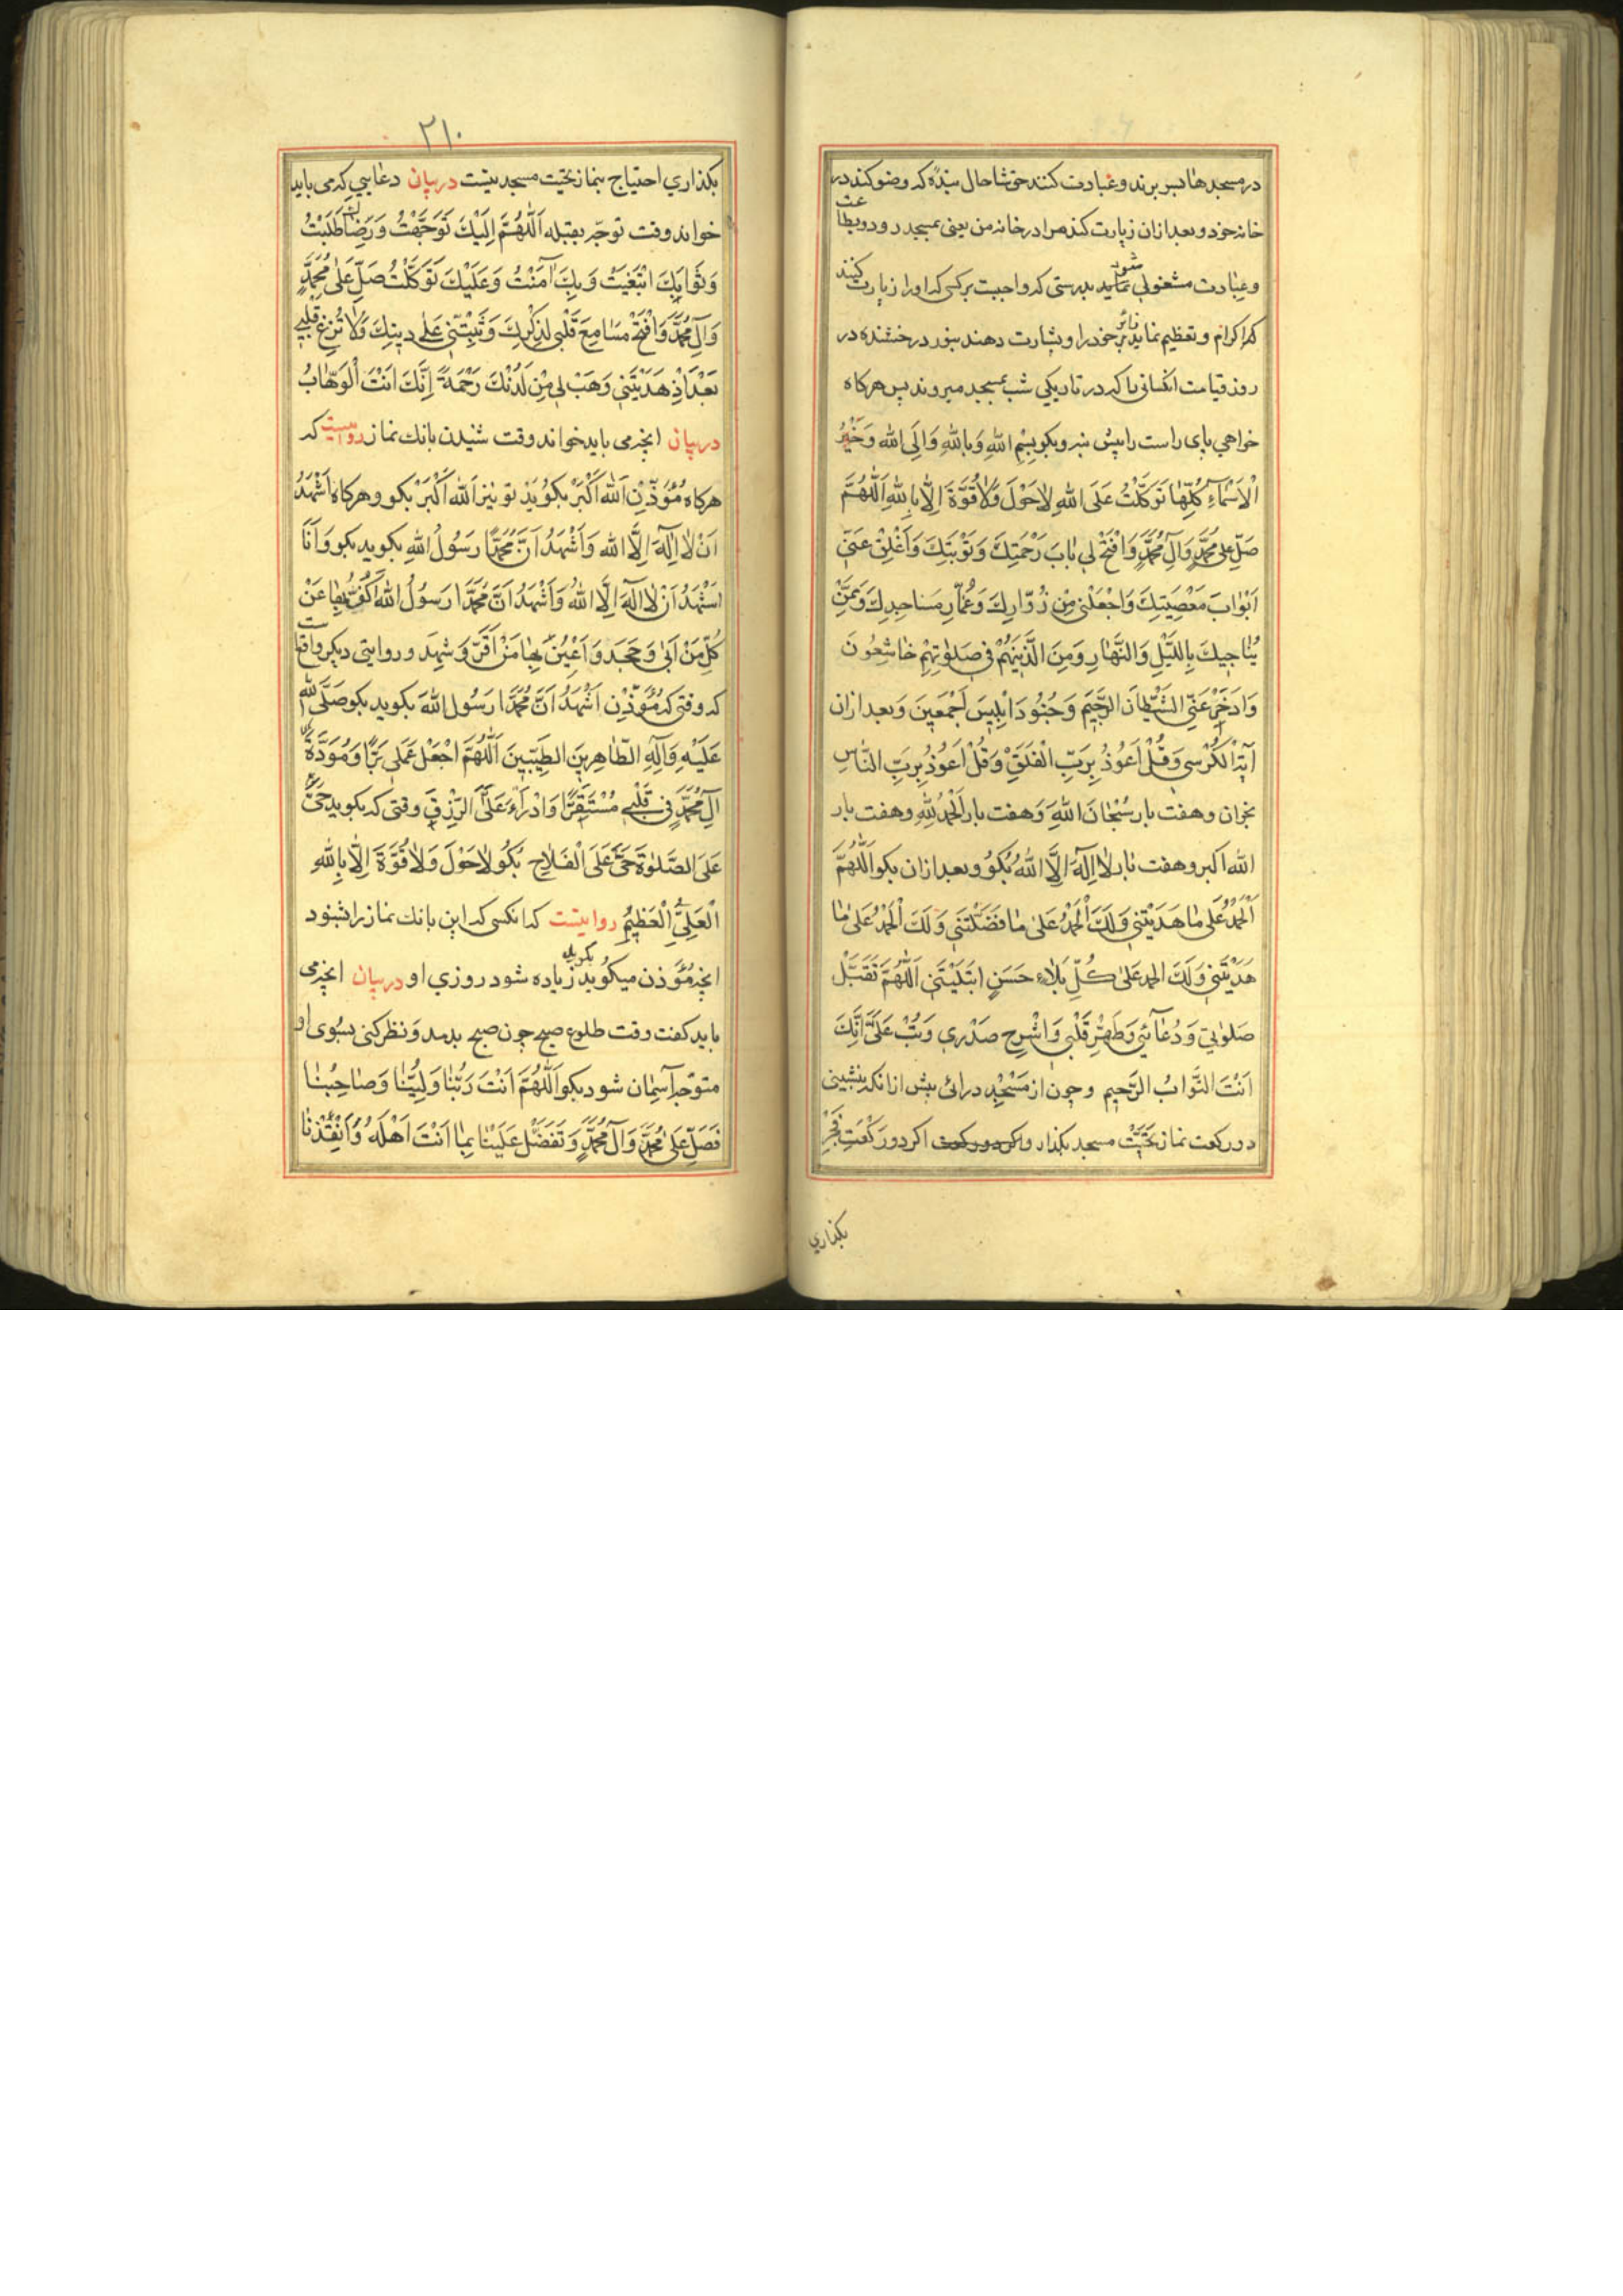 در مسجدها بسر برند و عبادت کنند خوشا حال بنده که وضو کند در
خانه خود و بعد ازان زیارت کند مرا در خانه من یعنی بمسجد رود و بطاعت
و عبادت مشغولی نماید شود بدرستی که واجبست بر کسی که او را زیارت کنند
که اکرام و تعظیم نماید زائر خود را و بشارت دهند بنور درخشنده در
روز قیامت انکسانی را که در تاریکی شب بمسجد میروند پس هرکاه
خواهی پای راست را پیش نه و بکو بِسْمِ اللهِ وَبِاللهِ وَاِلَی اللهِ وَخَیْرُ
الْاَسْمَاءِ کُلِّهَا تَوَکَّلْتُ عَلَی اللهِ لاحَوْلَ وَلاقُوَّةَ اِلَّا بِاللهِ اَللّٰهُمَّ
صَلِّ عَلٰی مُحَمَّدٍ وَآلِ مُحَمَّدٍ وَافْتَحْ لِی بَابَ رَحْمَتِكَ وَتَوْبَتِكَ وَاَغْلِقْ عَنّی
اَبْوَابَ مَعْصِیَتِكَ وَاجْعَلْنِی مِنْ زُوّارِكَ وَعُمّارِ مَسَاجِدِكَ وَمِمَّنْ
یُنَاجِیكَ بِاللَّیْلِ وَالنَّهَارِ وَمِنَ الَّذِینَ هُمْ فِی صَلٰوتِهِمْ خَاشِعُونَ
وَادْحَرْ عَنّی الشَّیْطَانَ الرَّجِیمَ وَجُنُودَ اِبْلِیسَ اَجْمَعِینَ و بعد ازان
آیَةَ الْکُرْسِی وَقُلْ اَعُوذُ بِرَبِّ الْفَلَقِ وَقُلْ اَعُوذُ بِرَبِّ النَّاسِ
بخوان و هفت بار سُبْحَانَ اللهِ وَ هفت بار اَلْحَمْدُ لِلّهِ و هفت بار
الله اکبر و هفت بار لا اِلٰهَ اِلَّا اللهُ بکو و بعد ازان بکو اَللّٰهُمَّ لَكَ
اَلْحَمْدُ عَلٰی مَا هَدَیْتَنِی وَلَكَ الْحَمْدُ عَلٰی مَا فَضَّلْتَنِی وَلَكَ الْحَمْدُ عَلٰی مَا
هَدَیْتَنِی وَلَكَ الحمد عَلٰی کُلِّ بَلَاءٍ حَسَنٍ ابْتَلَیْتَنِی اَللّٰهُمَّ تَقَبَّلْ
صَلوٰتِی وَدُعَائِی وَطَهِّرْ قَلْبِی وَاشْرَحْ صَدْرِی وَتُبْ عَلَیَّ اِنَّكَ
اَنْتَ التَّوَّابُ الرَّحِیمِ و چون از مَسْجِد درائی پیش ازانکه بنشینی
دو رکعت نماز تَحِیَّتْ مسجد بکذار و اکر دو رکعت اکر دو رَکْعَت فَجْر
بکذاری
۲۱۰
بکذاری احتیاج بنماز تحیت مسجد نیست دربیان دعایی که می باید
خواند وقت توجّه بقبله اَللّٰهُمَّ اِلَیْكَ تَوَجَّهْتُ وَرِضَاكَ طَلَبْتُ
وَثَوَابَكَ ابْتَغَیْتُ وَبِكَ آمَنْتُ وَعَلَیْكَ تَوَکَّلْتُ صَلِّ عَلٰی مُحَمَّدٍ
وَآلِ مُحَمَّدٍ وَافْتَحْ مَسَامِعَ قَلْبِی لِذِکْرِكَ وَثَبِّتْنِی عَلٰی دِینِكَ وَلَا تُزِغْ قَلْبِی
بَعْدَ اِذْ هَدَیْتَنِی وَهَبْ لِی مِنْ لَدُنْكَ رَحْمَةً اِنَّكَ اَنْتَ الْوَهَّابُ
دربیان انچه می باید خواند وقت شنیدن بانك نماز روایتست که
هرکاه مُؤَذِّنْ اَللهُ اَکْبَرْ بکوید تو نیز اَللهُ اَکْبَرْ بکو و هرکاه اَشْهَدُ
اَنْ لَا اِلٰهَ اِلَّا الله وَاَشْهَدُ اَنَّ مُحَمَّدًا رَسُولُ اللهِ بکوید بکو وَاَنَا
اَشْهَدُ اَنْ لَا اِلٰهَ اِلَّا اللهُ وَاَشْهَدُ اَنَّ مُحَمَّدًا رَسُولُ اللهِ اَکْفِی بِهَا عَنْ
کُلِّ مَنْ اَبٰی وَجَحَدَ وَاُعِینُ بِهَا مَنْ اَقَرَّ وَشَهِدَ و روایتی دیکر واقعست
که وقتی که مُؤَذِّنْ اَشْهَدُ اَنَّ مُحَمَّدًا رَسُولُ اللهِ بکوید بکو صَلَّی اللهُ
عَلَیْهِ وَآلِهِ الطّاهِرِینَ الطَّیِّبِینَ اَللّٰهُمَّ اجْعَلْ عَمَلِی بَرًّا وَمَوَدَّةَ
آلِ مُحَمَّدٍ فِی قَلْبِی مُسْتَقِرًّا وَادْرَأْ عَلَیَّ الرِّزْقَ وقتی که بکوید حَیَّ
عَلَی الصَّلوٰة حَیَّ عَلَی الْفَلَاحِ بکو لَاحَوْلَ وَلَا قُوَّةَ اِلَّا بِاللهِ
الْعَلِیِّ الْعَظِیْمُ روایتست که انکسی که این بانك نماز را شنود
انچه مُؤَذن میکوید بکوید زیاده شود روزی او دربیان انچه می
باید کفت وقت طلوع صبح چون صبح بدمد و نظر کنی بسوی او
متوجّه آسمان شود بکو اَللّٰهُمَّ اَنْتَ رَبُّنَا وَلِیُّنَا وَصَاحِبُنَا
فَصَلِّ عَلٰی مُحَمَّدٍ وَآلِ مُحَمَّدٍ وَتَفَضَّلْ عَلَیْنَا بِمَا اَنْتَ اَهْلُهُ وَاَنْقِذْنَا